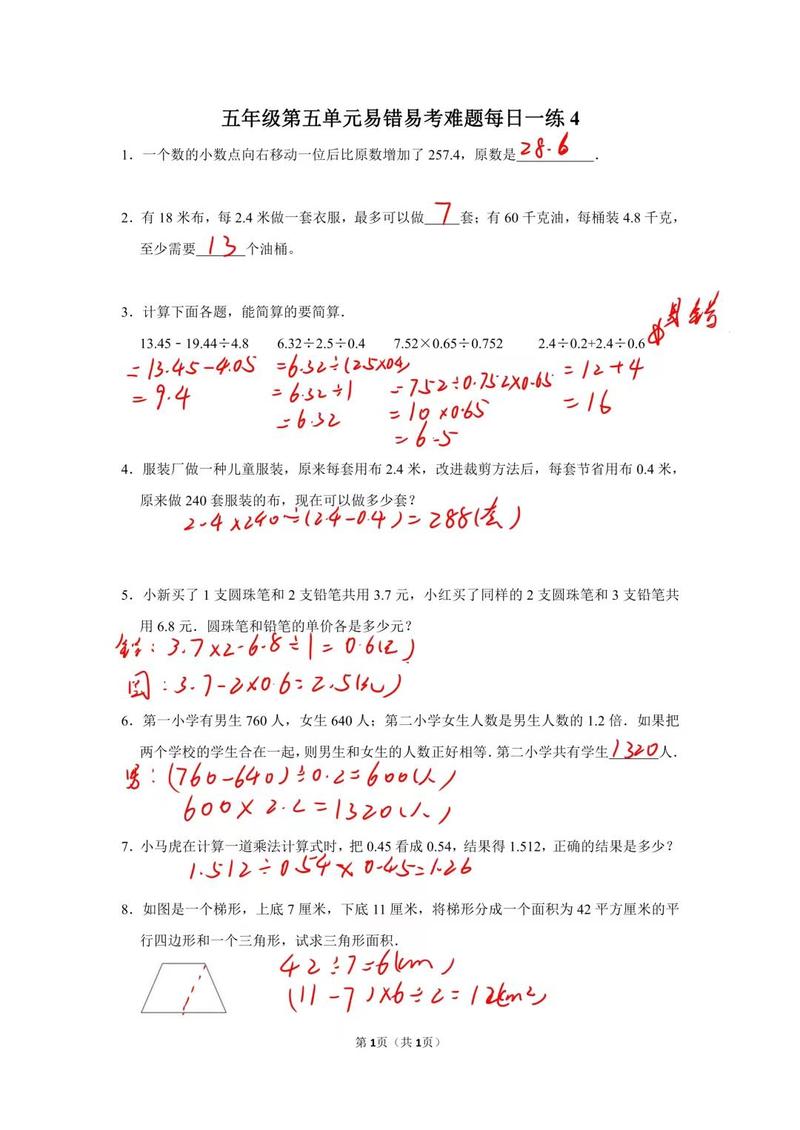 五年级第五单元易错易考难题每日一练 4
1．一个数的小数点向右移动一位后比原数增加了 257.4，原数是 28.6 ．
2．有 18 米布，每 2.4 米做一套衣服，最多可以做 7 套；有 60 千克油，每桶装 4.8 千克，
至少需要 13 个油桶。
3．计算下面各题，能简算的要简算．
易错
13.45﹣19.44÷4.8 6.32÷2.5÷0.4 7.52×0.65÷0.752 2.4÷0.2+2.4÷0.6
=13.45-4.05 =6.32÷(2.5×0.4) =7.52÷0.752×0.65 =12+4
=9.4 =6.32÷1 =10×0.65 =16
=6.32 =6.5
4．服装厂做一种儿童服装，原来每套用布 2.4 米，改进裁剪方法后，每套节省用布 0.4 米，
原来做 240 套服装的布，现在可以做多少套？
2.4×240÷(2.4-0.4)=288(套)
5．小新买了 1 支圆珠笔和 2 支铅笔共用 3.7 元，小红买了同样的 2 支圆珠笔和 3 支铅笔共
用 6.8 元．圆珠笔和铅笔的单价各是多少元？
铅：3.7×2-6.8÷1=0.6(元)
圆：3.7-2×0.6=2.5(元)
6．第一小学有男生 760 人，女生 640 人；第二小学女生人数是男生人数的 1.2 倍．如果把
两个学校的学生合在一起，则男生和女生的人数正好相等．第二小学共有学生 1320 人．
男：(760-640)÷0.2=600(人)
600×2.2=1320(人)
7．小马虎在计算一道乘法计算式时，把 0.45 看成 0.54，结果得 1.512，正确的结果是多少？
1.512÷0.54×0.45=1.26
8．如图是一个梯形，上底 7 厘米，下底 11 厘米，将梯形分成一个面积为 42 平方厘米的平
行四边形和一个三角形，试求三角形面积．
42÷7=6(cm)
(11-7)×6÷2=12(cm²)
第 1页（共 1页）